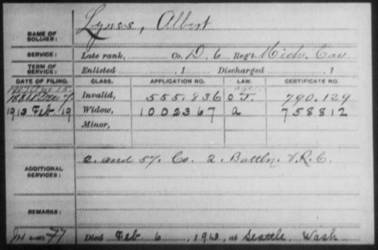 NAME OF SOLDIER: Lyness, Albert
SERVICE: Late rank, Co. D, 6 Reg't Mich. Cav
TERM OF SERVICE: Enlisted , 1 Discharged , 1
DATE OF FILING. CLASS. APPLICATION NO. LAW. CERTIFICATE NO.
Invalid, 555.836 790.129
1913 Feb 19 Widow, 1002367 758812
Minor,
ADDITIONAL SERVICES: and 57. Co. 2 Battln. V.R.C.
REMARKS:
Died Feb 6, 1913, at Seattle, Wash